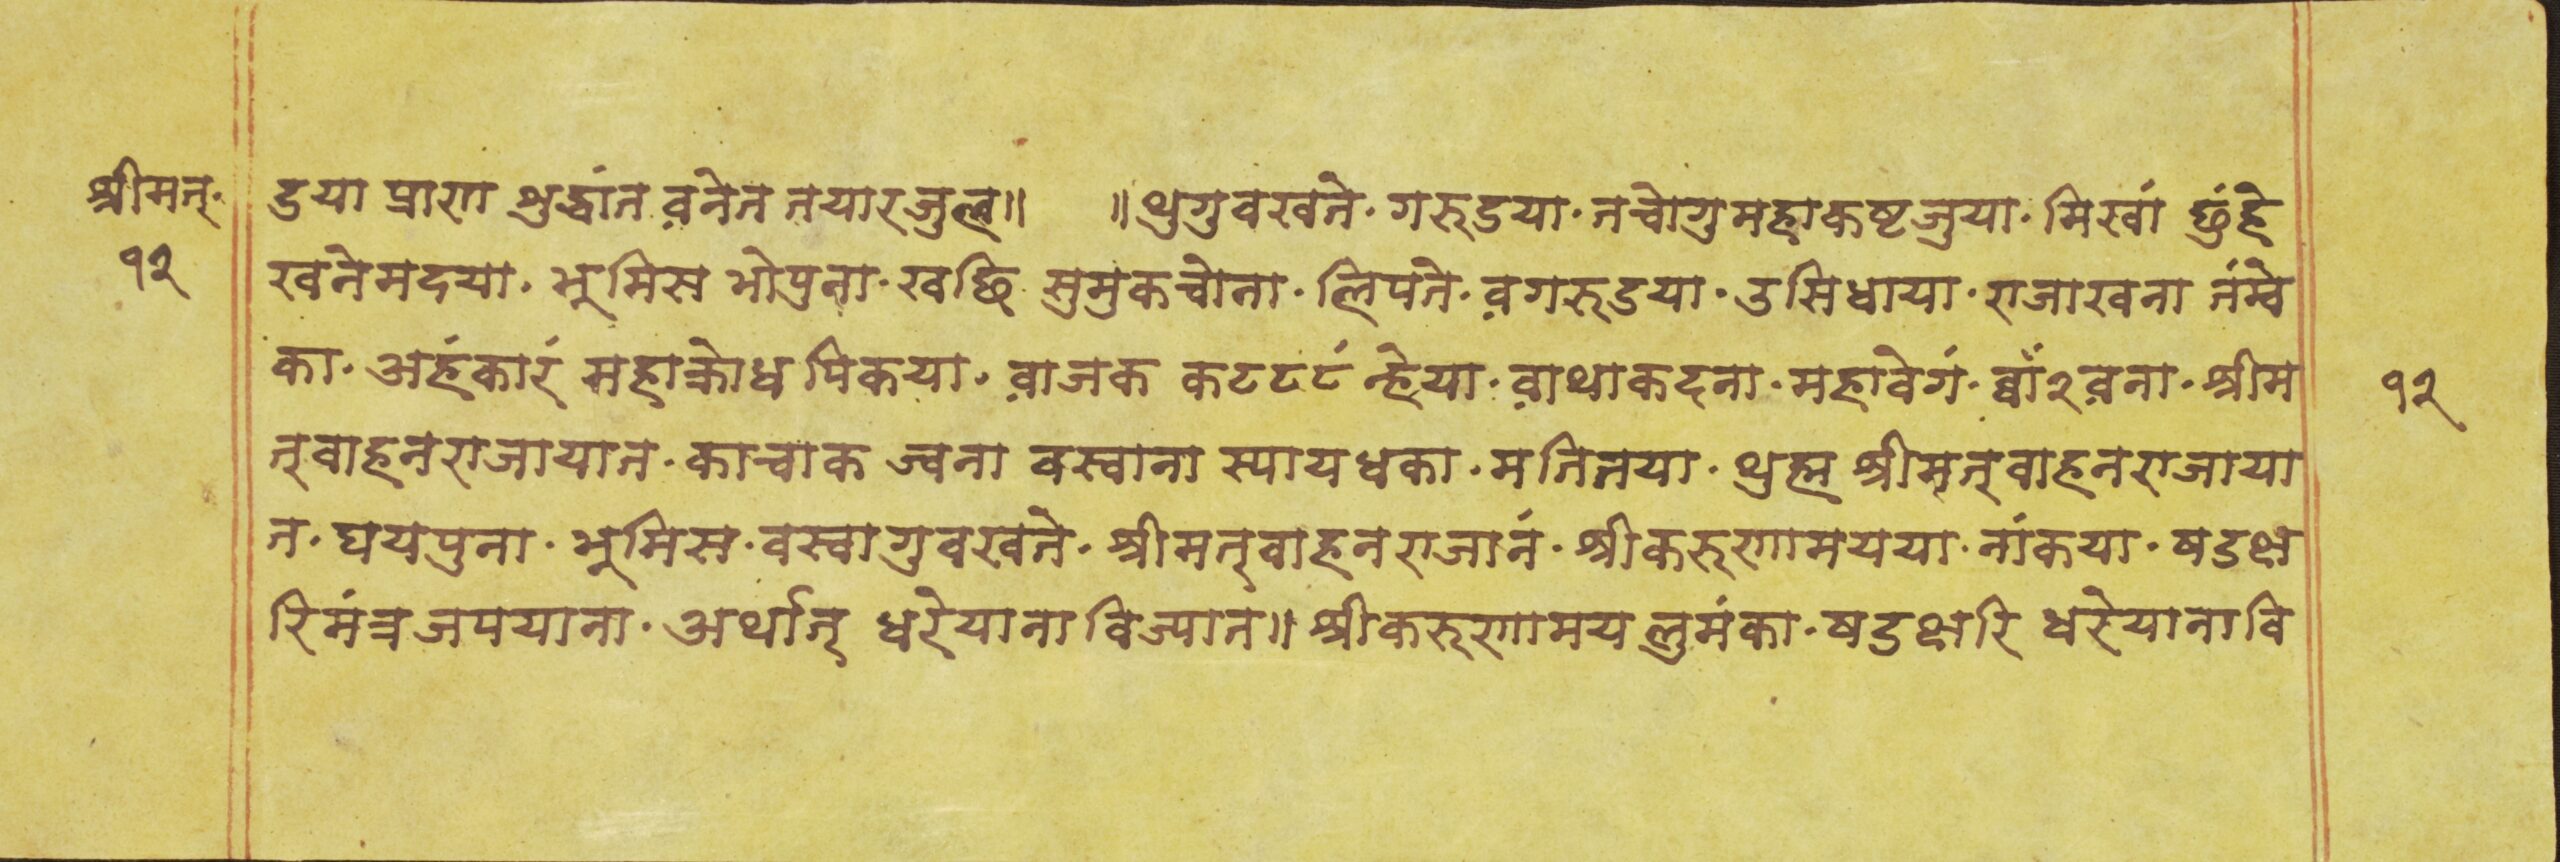 श्रीमत्·
१२
डया प्राण शुद्धांन व़नेन तयारजुल॥ ॥थुगुवखते· गरूडया· नच्वोगुमहाकष्टजुया· मिखां छुंहे
खनेमदया· भूमिस भोपुना· खछि सुमुकच्वोना· लिपते· व़गरूडया· उसिधाया· राजाखना तंम्वे
का· अहंकारं महाक्रोध पिकया· व़ाजक कटटटं न्हेया· व़ाथाकदना· महावेगं· ब्वाँ२व़ना· श्रीम
१२
त्वाहनराजायात· काचाक ज्वना वस्वाना स्यायधका· मतितया· थुह्म श्रीमत्वाहनराजाया
त· घयपुना· भूमिस· वस्वागुवखते· श्रीमत्वाहनराजानं· श्रीकरूणामयया· नांकया· षडक्ष
रिमंत्रजपयाना· अर्थात् धरेयाना विज्यात॥ श्रीकरूणामय लुमंका· षडक्षरि धरेयानावि